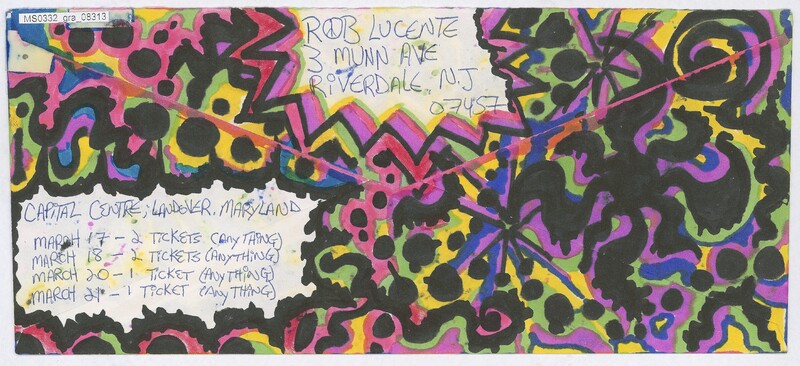 MS0332_gra_08313
ROB LUCENTE
3 MUNN AVE
RIVERDALE, NJ
07457
CAPITAL CENTRE, LANDOVER, MARYLAND
MARCH 17 - 2 TICKETS (ANYTHING)
MARCH 18 - 2 TICKETS (ANYTHING)
MARCH 20 - 1 TICKET (ANYTHING)
MARCH 21 - 1 TICKET (ANYTHING)